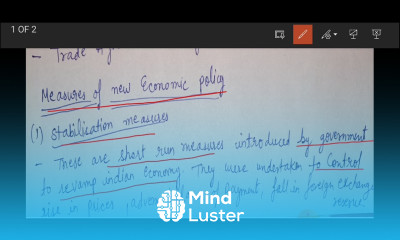 1 OF 2
- Trade
Measures of new Economic policy
(1) Stabilisation measures
- These are short run measures introduced by government
to revamp indian economy. They were undertaken to Control
rise in Prices, payment, fall in foreign exchange
Mind
Luster